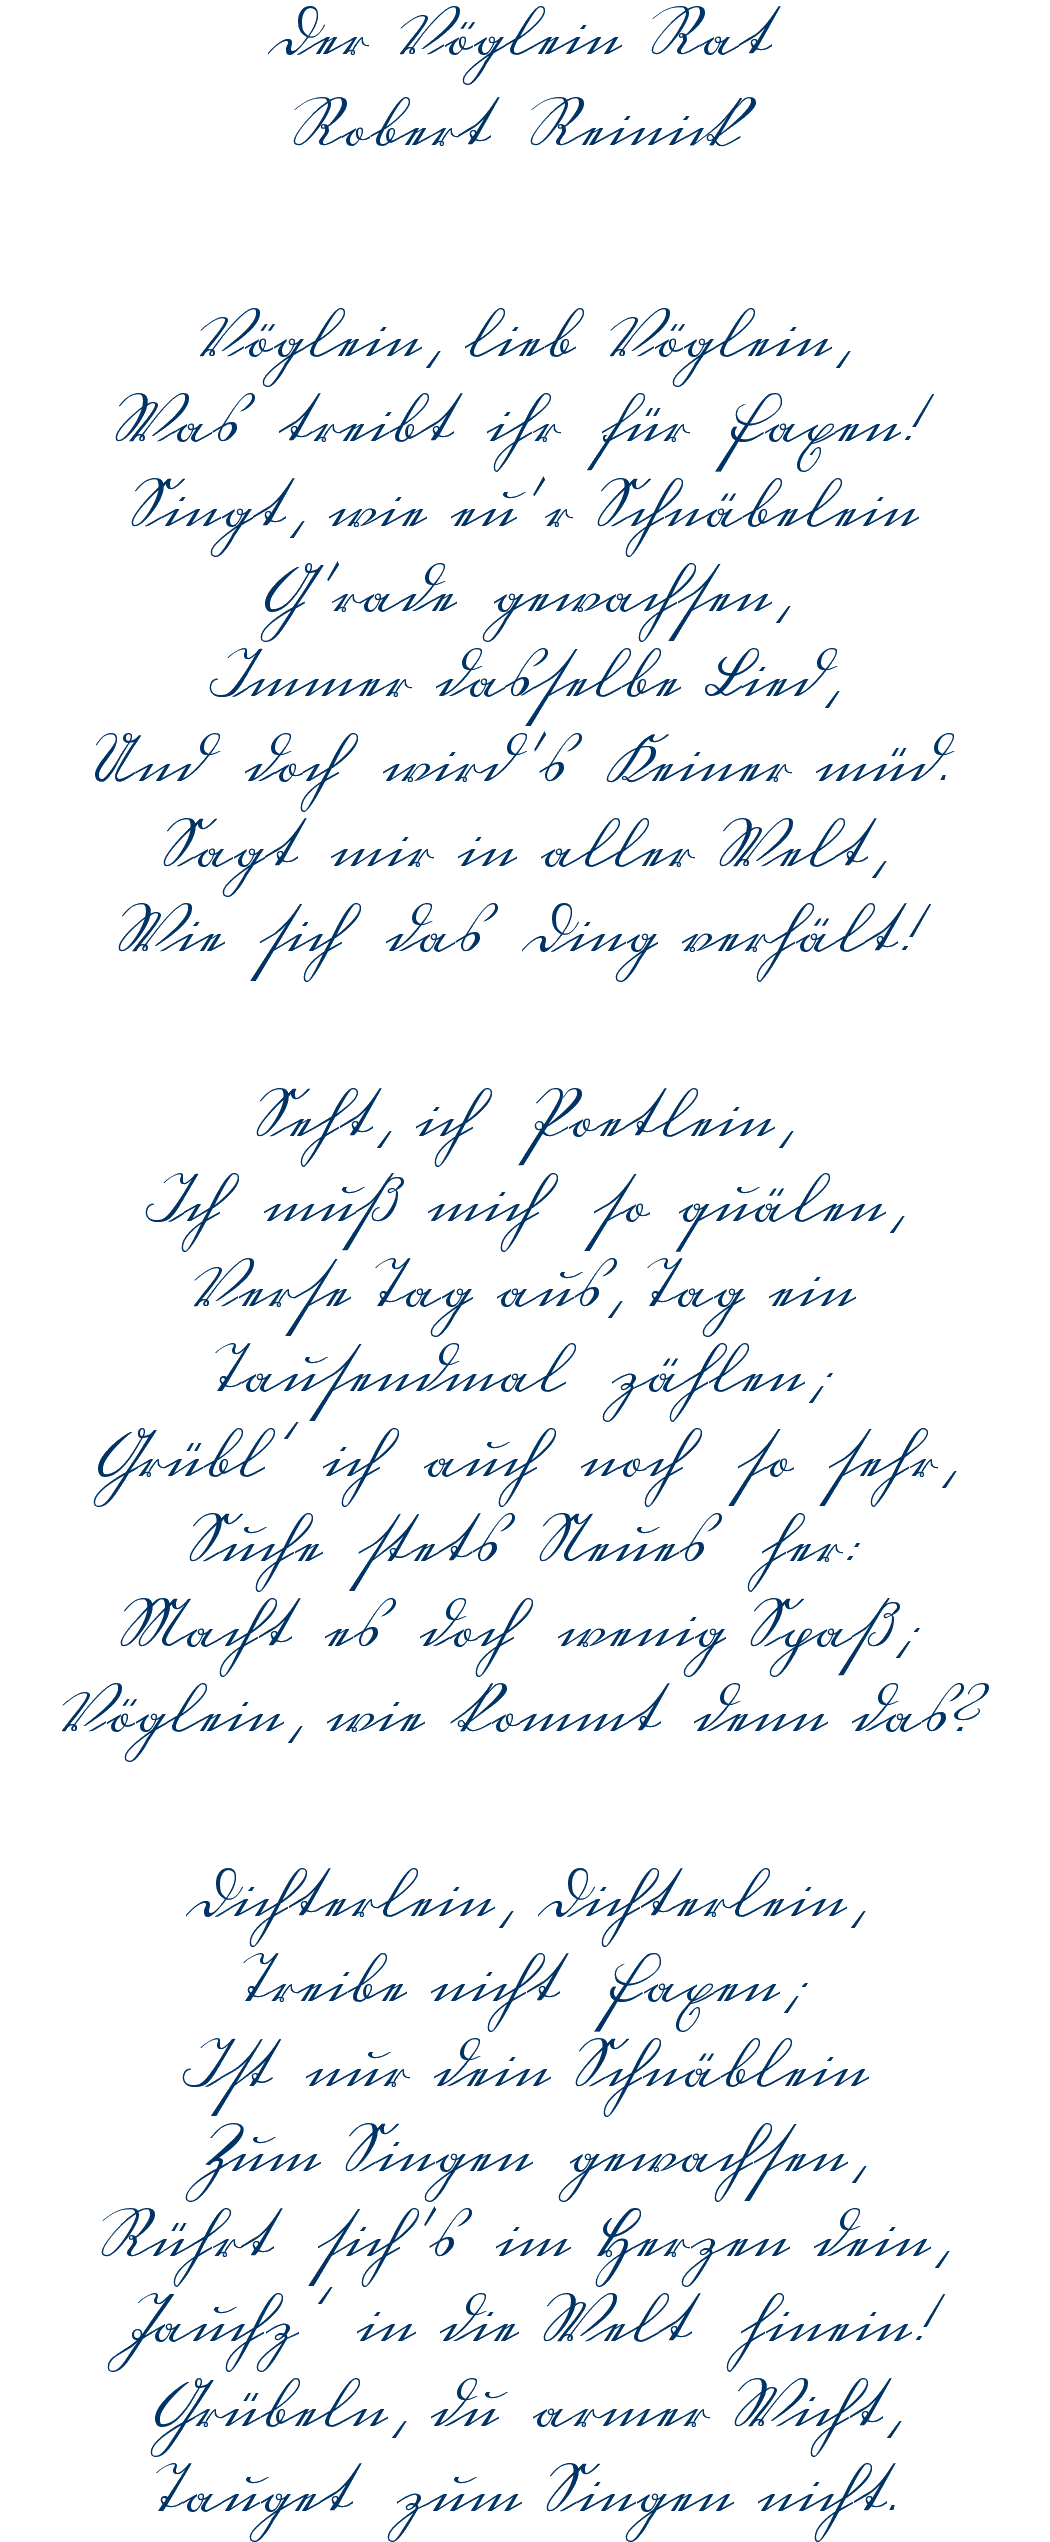 Der Vöglein Rat
Robert Reinick
Vöglein, lieb Vöglein,
Was treibt ihr für Faxen!
Singt, wie eu'r Schnäbelein
G'rade gewachsen,
Immer dasselbe Lied,
Und doch wird's Keiner müd.
Sagt mir in aller Welt,
Wie sich das Ding verhält!
Seht, ich Poetlein,
Ich muß mich so quälen,
Verse Tag aus, Tag ein
Tausendmal zählen;
Grübl' ich auch noch so sehr,
Suche stets Neues her:
Macht es doch wenig Spaß;
Vöglein, wie kommt denn das?
Dichterlein, Dichterlein,
Treibe nicht Faxen;
Ist nur dein Schnäblein
Zum Singen gewachsen,
Rührt sich's im Herzen dein,
Jauchz' in die Welt hinein!
Grübeln, du armer Wicht,
Tauget zum Singen nicht.